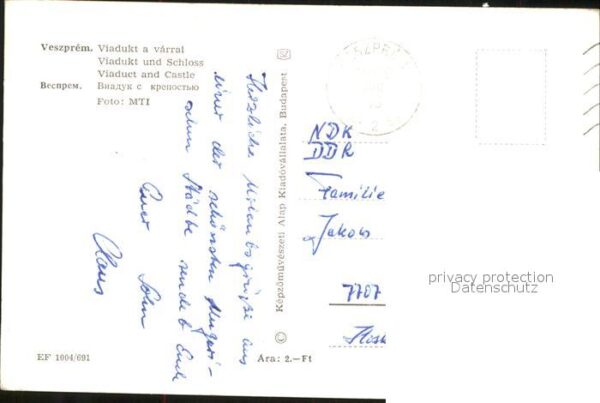 Veszprém. Viadukt a várral
Viadukt und Schloss
Viaduct and Castle
Веспрем. Виадук с крепостью
Foto: MTI
Herzliche Urlaubsgrüße aus
einer der schönsten Ungari-
schen Städte sendet Euch
Euer Sohn
Klaus
Képzőművészeti Alap Kiadóvállalata, Budapest
NDK
DDR
Familie
Jakob
7707
privacy protection
Datenschutz
EF 1004/691
Ára: 2.—Ft